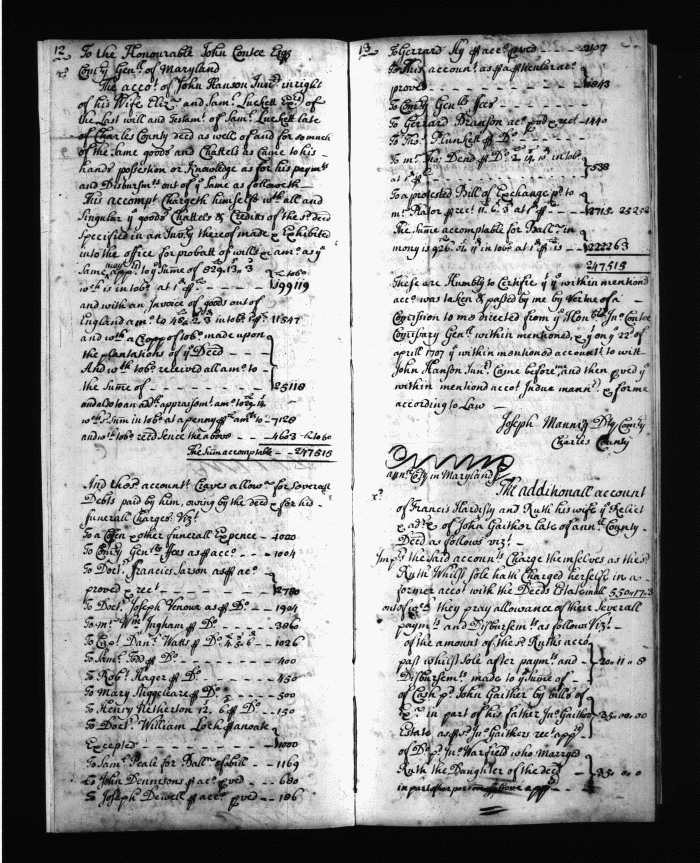 12
To the Honourable John Contee Esqr
Comry Genll of Maryland
The accot of John Hanson Junr in right
of his Wife Eliz: and Saml Luckett Exrs of
the Last will and Testamt of Saml Luckett late
of Charles County deed as well of and for so much
of the Same goods and Chattels as Came to his
hands possestion or Knowledge as for his paymts
and Disbursmts out of ye Same as followeth
This accompt Chargeth himself wth all and
Singular ye goods Chattels & Credits of the sd deed
Specified in an Invry thereof made & Exhibited
into the office for probatt of wills & amts as ye
Same appr to ye Sume of 829.13.3
wch is in tobo at 199119
and with an Invoice of goods out of
England amt to 48.2.3 in tobo 11547
and wth a Cropp of tobo made upon
the plantations of ye Deed
And wth tobo received all amt to
the Sume of 25118
and also to an adl appraisemt amt to
wch Sum in tobo at a penny amts to 7128
and wth tobo reced Sence the above 4603
The Sum accomptable 247515
And thos accountt Craves allowce for Severall
Debts paid by him, owing by the deed & for his
funerall Charges Vizt
To a Coffen & other funerall Expence 1020
To Comry Genlls fees as accot 1004
To Doctr Francies Sarson as acct
proved & rect 2780
To Doctr Joseph Venour as Do 1904
To mr Wm Ingham Do 386
To Capt Danl Watts Do 2. 3. 5. 6 1026
To Saml Todd Do 400
To Robt Hager Do 450
To Mary Niggleare Do 500
To Henry Netherton 12, 6 Do 150
To Doctr William Loch
Excepted 1000
To Saml Peale for Ballce of bill 1169
To John Dennisons acct pved 680
To Joseph Dewell acct pved 186
13
To Gerrard Sly acct pved 2107
To this account as
proved 1843
To Comry Genlls fees
To Gerrard Branson acct pvd rect 1440
To Tho: Plunkett Do
To mr Tho: Dent Do 2. 14. 10 in tobo
at 538
To a protested Bill of Exchange pd to
mr Plator rect 11. 6. 3 at 2715 25252
The Sume accomptable for Ballce in
mony is 926. in tobo at is 222263
247515
These are Humbly to Certifie yt ye within mentiond
acct was taken & passed by me by Vertue of a
Comission to me directed from ye Honble Jno Contee
Comisary Genll within mentioned, ye 22d of
aprill 1707 ye within mentioned accountt to witt
John Hanson Junr Came before me and then pved ye
within mentiond accot In due mannr & forme
according to Law
Joseph Manning Dty Comry
Charles County
Ann: Coty in Maryland
The additionall account
of Francis Hardisty and Ruth his wife ye Relict
& adx of John Gaither late of annll County
Deed as follows vizt
Imprs the Said accounts Charge themselves as the sd
Ruth Whilst sole hath Charged herself in a
former accot with the Deeds Estate 550.17.3
out of wch they pray allowance of their Severall
paymts and Disbursemts as follows Vizt
of the amount of the sd Ruths acco
past whilst Sole after paymt and 20 .. 11 .. 8
Disbursemts made to ye Sume of
of Cash pd John Gaither by bills of
Exa in part of his father Jno Gaithers 35.00.00
Estate as sd Jno Gaithers rect appr
of Do pd Jno Warfield who Married
Ruth the Daughter of the deed 35 . 0 . 0
in part